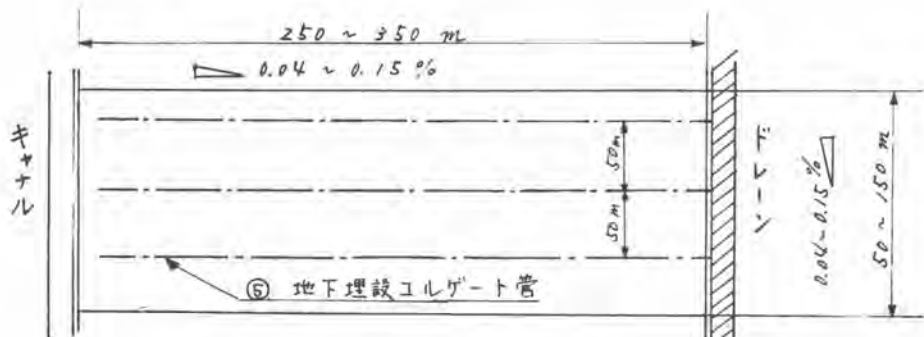 250 ~ 350 m
0.04 ~ 0.15 %
キャナル
50m
50m
ドレーン
0.04~0.15%
50 ~ 150 m
⑤ 地下埋設コルゲート管